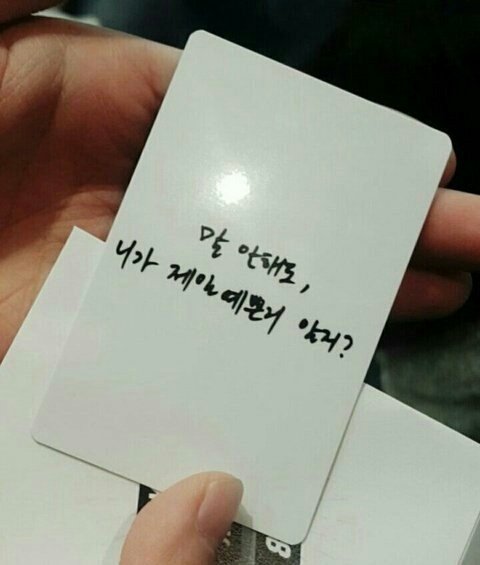 말 안해도,
니가 제일 예쁜거 알지?
B